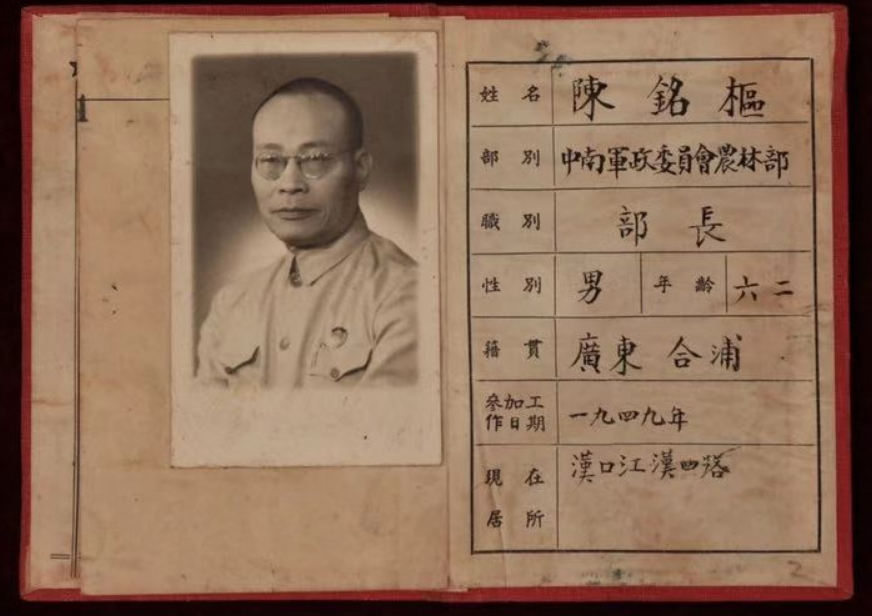 姓名 陳銘樞
部別 中南軍政委員會農林部
職別 部長
性別 男 年齡 六二
籍貫 廣東 合浦
參加工作日期 一九四九年
現在居所 漢口江漢四路
2